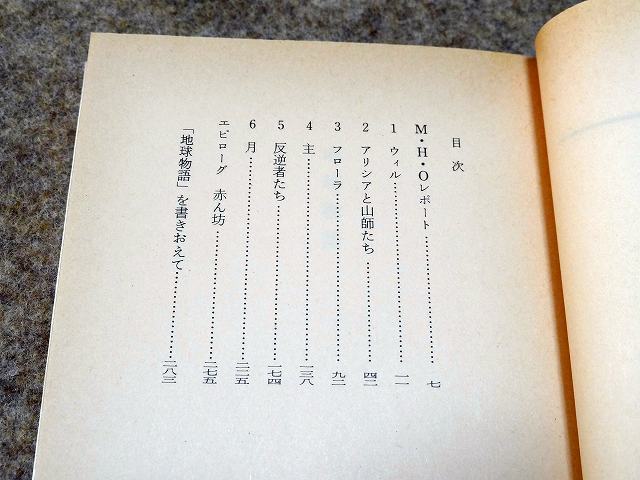 目次
M・H・Oレポート……………七
1 ウィル……………一一
2 アリシアと山師たち……………四二
3 フローラ……………九二
4 主……………一三八
5 反逆者たち……………一七四
6 月……………二二五
エピローグ 赤ん坊……………二七五
「地球物語」を書きおえて……………二八三